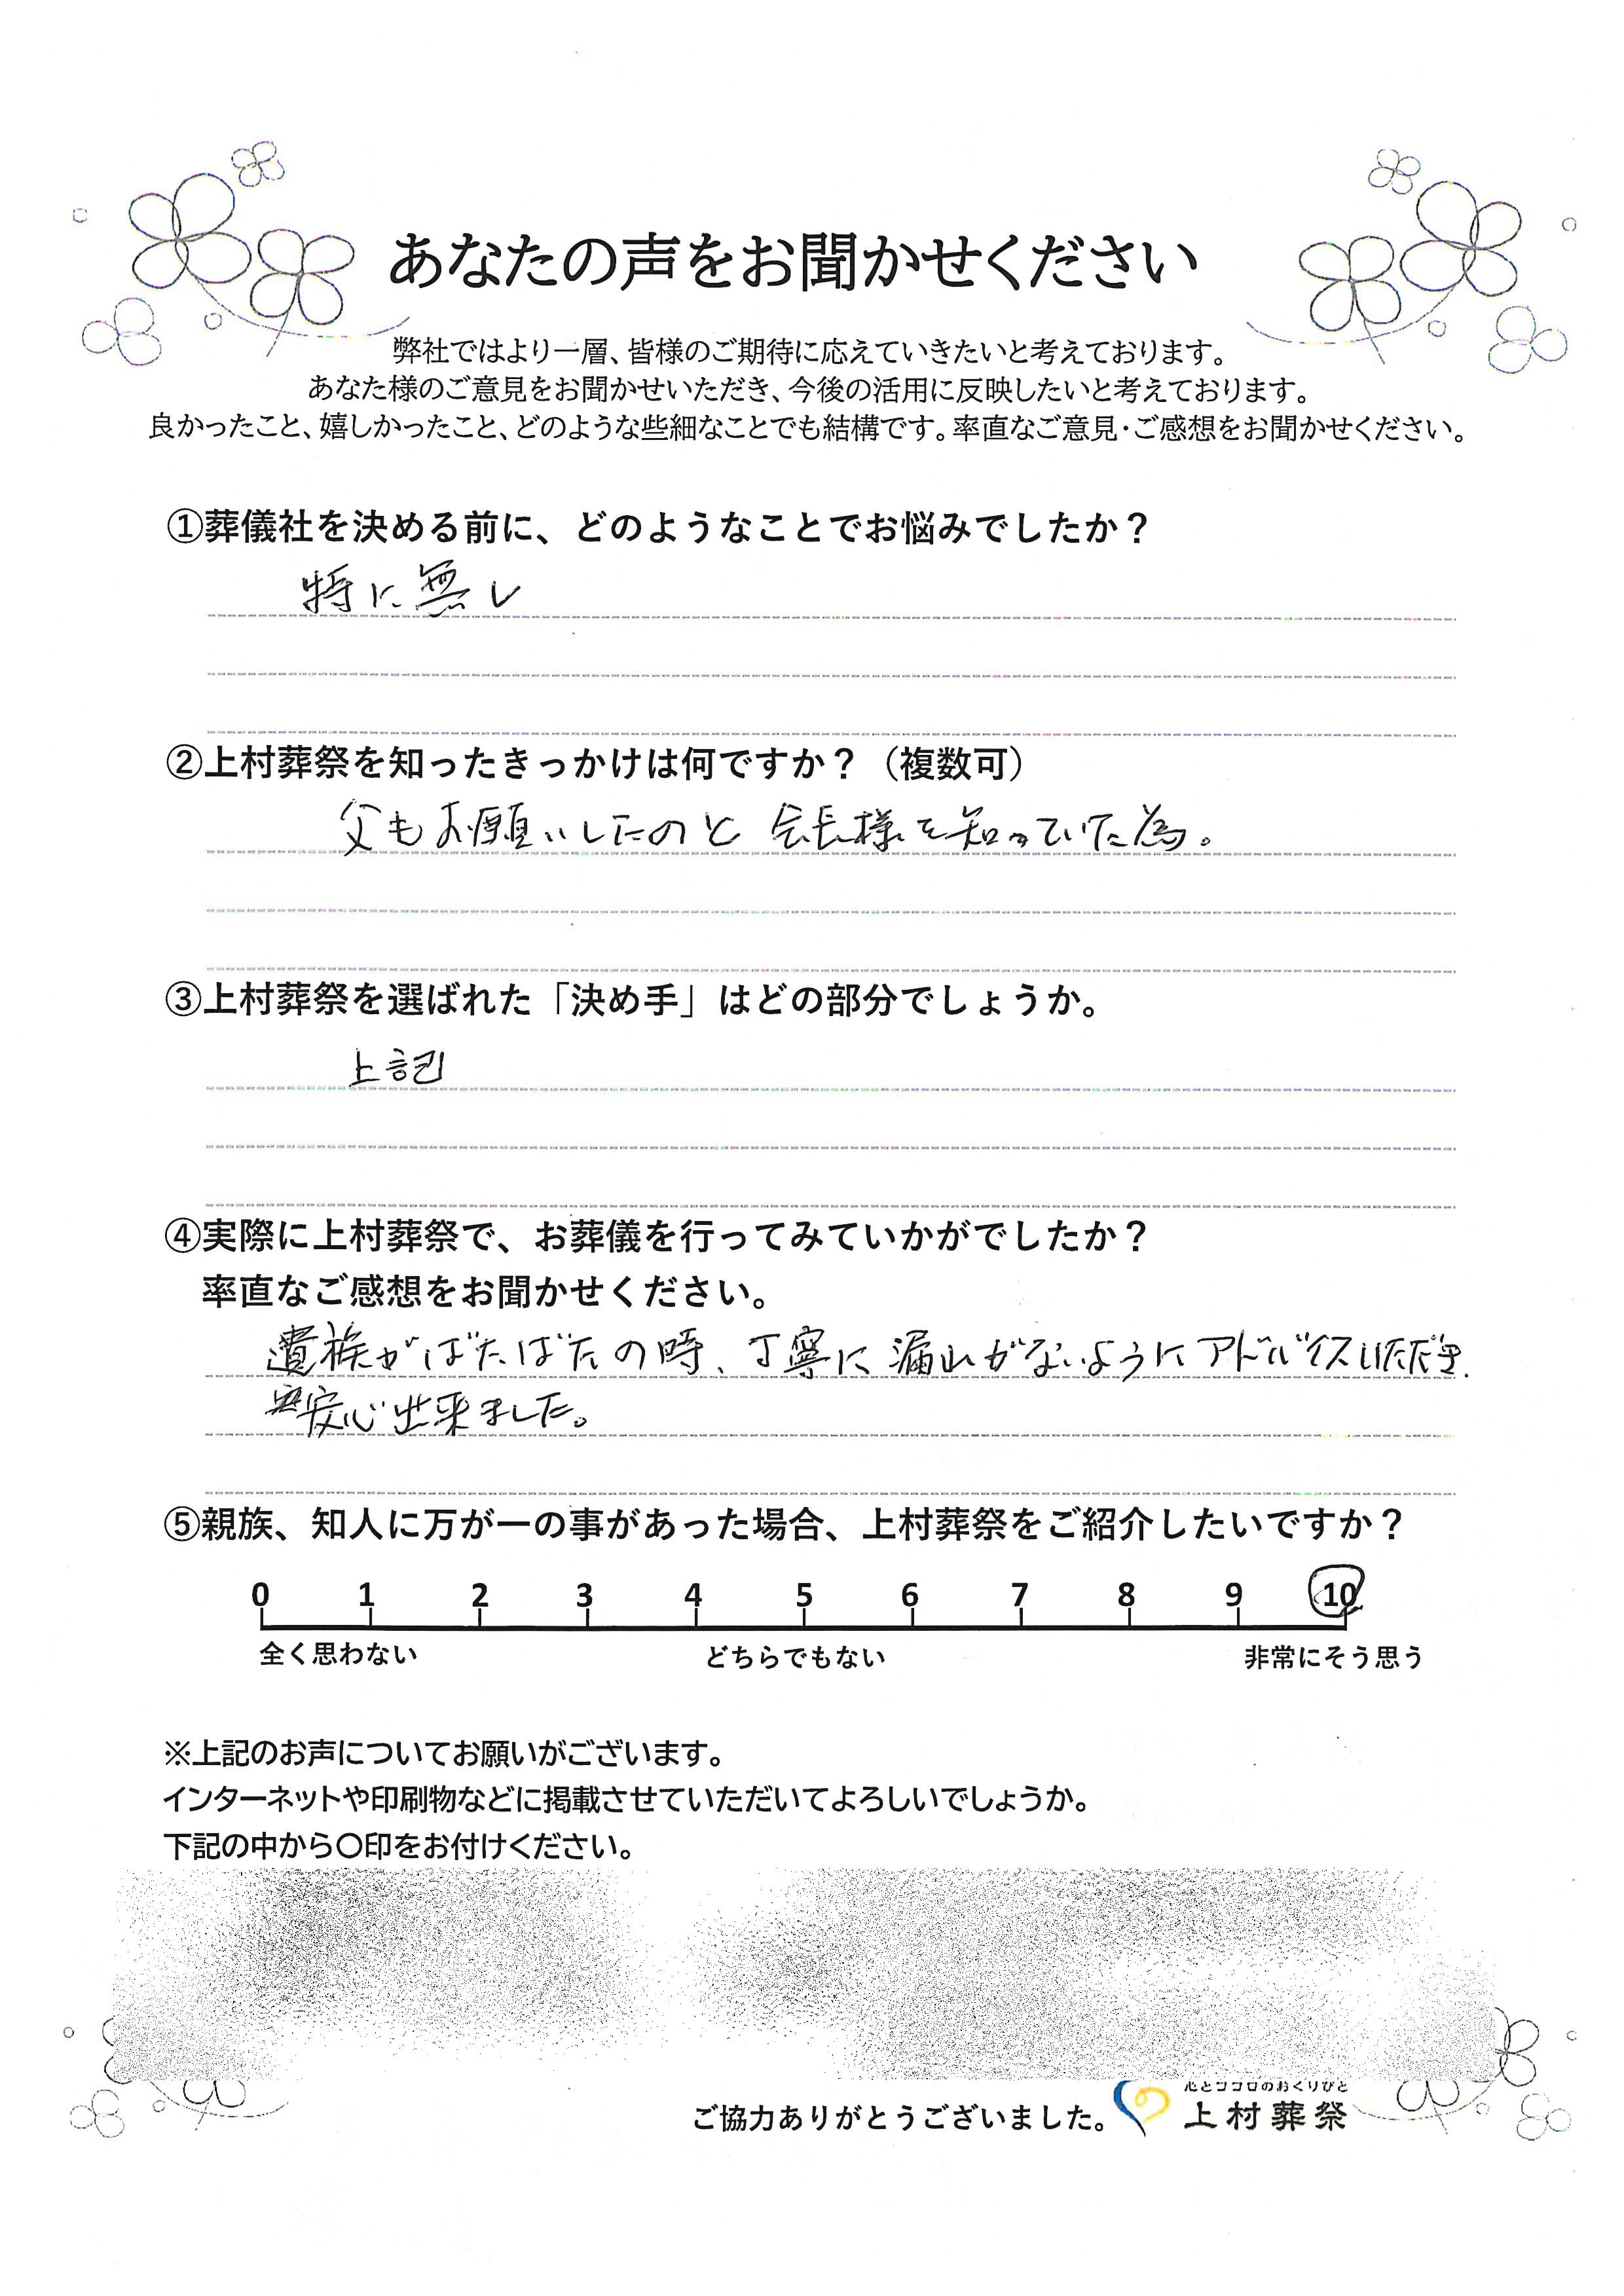 あなたの声をお聞かせください
弊社ではより一層、皆様のご期待に応えていきたいと考えております。
あなた様のご意見をお聞かせいただき、今後の活用に反映したいと考えております。
良かったこと、嬉しかったこと、どのような些細なことでも結構です。率直なご意見・ご感想をお聞かせください。
①葬儀社を決める前に、どのようなことでお悩みでしたか？
特に無し
②上村葬祭を知ったきっかけは何ですか？（複数可）
父もお願いしたのと 会長様を知っていた為。
③上村葬祭を選ばれた「決め手」はどの部分でしょうか。
上記
④実際に上村葬祭で、お葬儀を行ってみていかがでしたか？
率直なご感想をお聞かせください。
遺族がばたばたの時、丁寧に漏れがないようにアドバイスいただき、
安心出来ました。
⑤親族、知人に万が一の事があった場合、上村葬祭をご紹介したいですか？
0 1 2 3 4 5 6 7 8 9 10
全く思わない どちらでもない 非常にそう思う
※上記のお声についてお願いがございます。
インターネットや印刷物などに掲載させていただいてよろしいでしょうか。
下記の中から〇印をお付けください。
心とココロのおくりびと
ご協力ありがとうございました。 上村葬祭